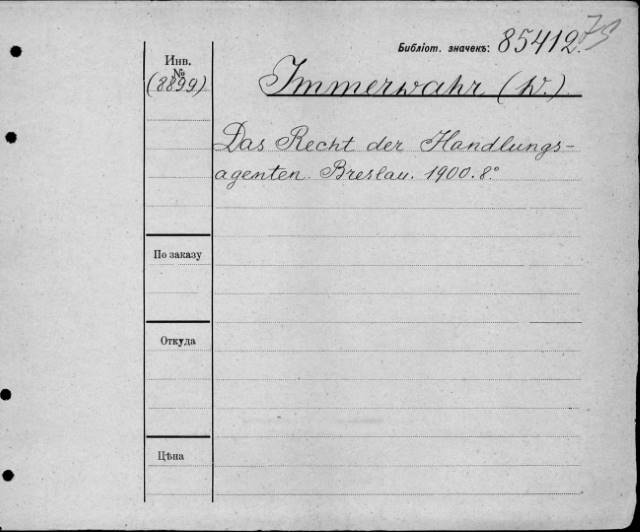 Библіот. значекъ: 85412.
Инв.
№
(8899)
Immerwahr (W.)
Das Recht der Handlungs-
agenten. Breslau. 1900. 8°
По заказу
Откуда
Цѣна